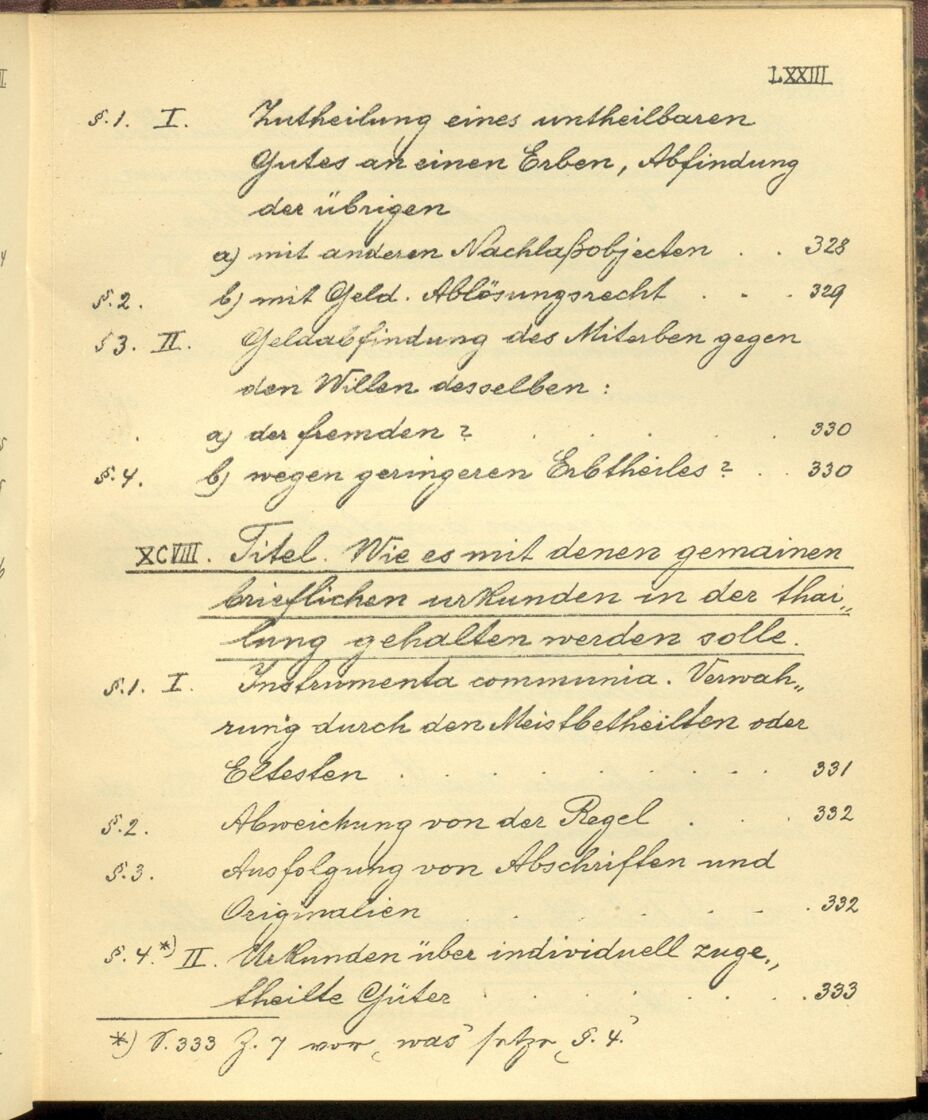 LXXIII
§.1. I. Zutheilung eines untheilbaren
Gutes an einen Erben, Abfindung
der übrigen
a) mit anderen Nachlaßobjecten . . 328
§.2. b) mit Geld. Ablösungsrecht . . . 329
§3. II. Geldabfindung des Miterben gegen
den Willen desselben:
a) der fremden? . . . . 330
§.4. b) wegen geringeren Erbtheiles? . . 330
XCVIII. Titel. Wie es mit denen gemainen
brieflichen urkunden in der thai„
lung gehalten werden solle.
§.1. I. Instrumenta communia. Verwah„
rung durch den Meistbetheilten oder
Eltesten . . . . . . . . 331
§.2. Abweichung von der Regel . . . 332
§.3. Ausfolgung von Abschriften und
Originalien . . . . . . . 332
§.4.*) II. Urkunden über individuell zuge„
theilte Güter . . . . . . . 333
*) S. 333 Z. 7 vor „was" setze „§. 4."